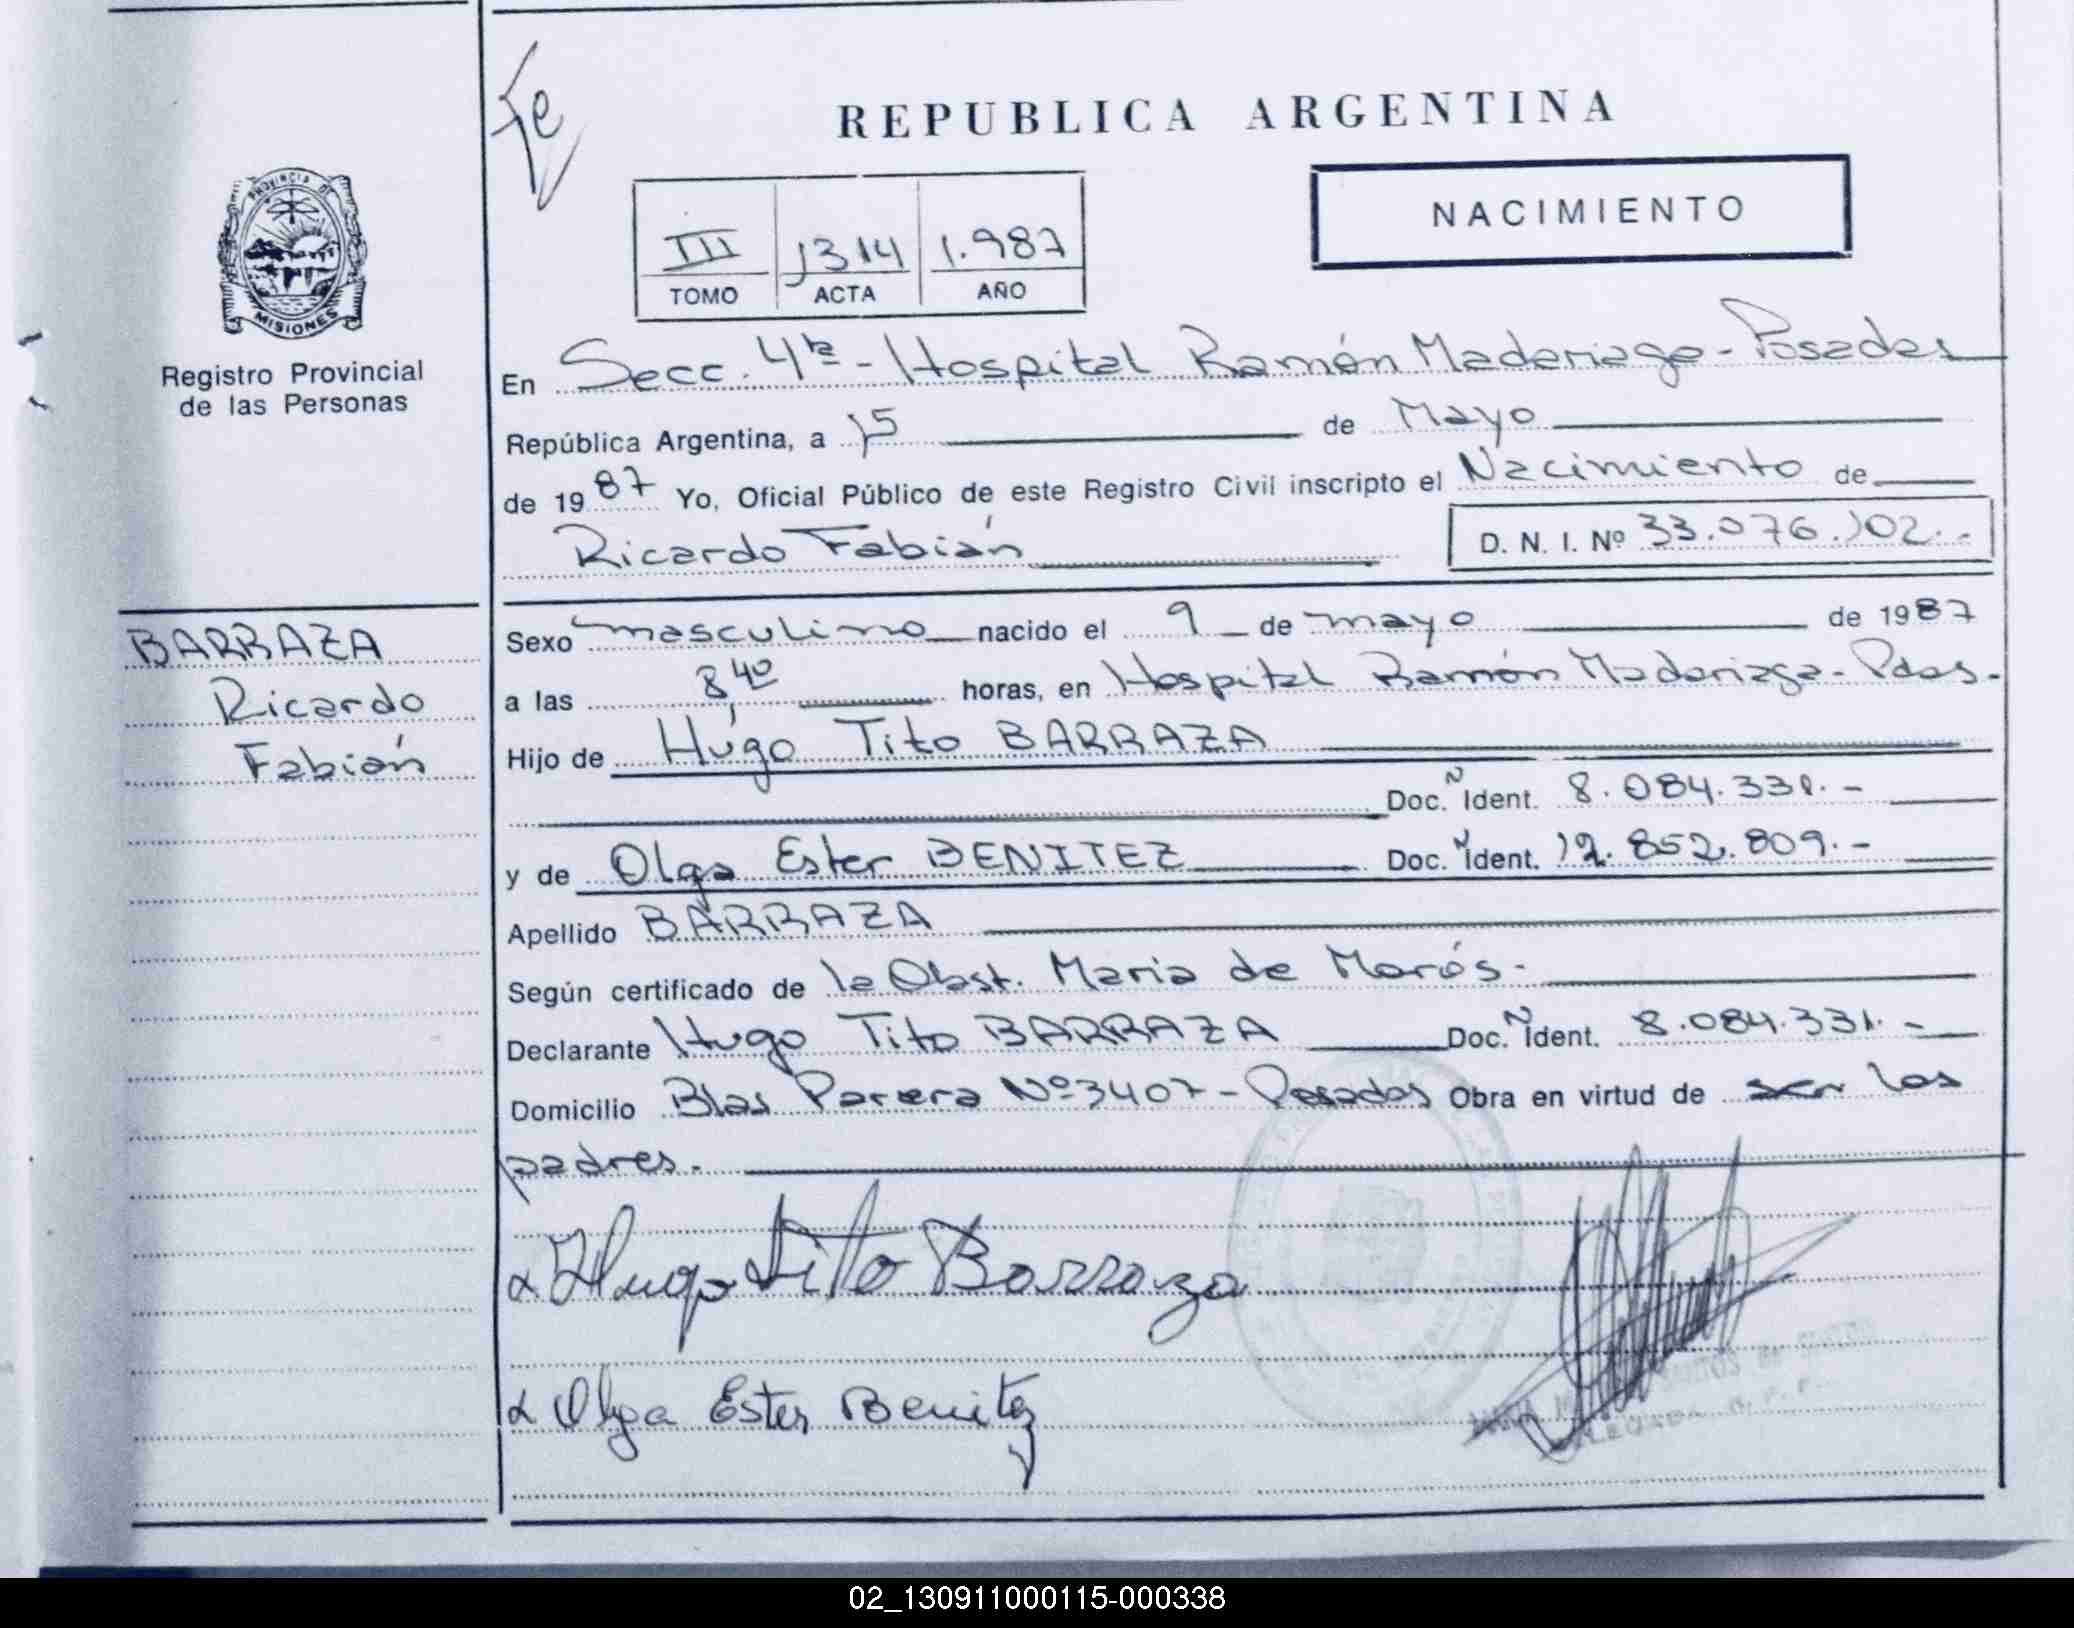 Fe
REPUBLICA ARGENTINA
NACIMIENTO
III 1314 1.987
TOMO ACTA AÑO
PROVINCIA DE
MISIONES
Registro Provincial
de las Personas
En Secc. 4ta - Hospital Ramón Madariaga - Posadas
República Argentina, a 15 de Mayo
de 1987 Yo, Oficial Público de este Registro Civil inscripto el Nacimiento de
Ricardo Fabián D. N. I. Nº 33.076.102.-
BARRAZA
Ricardo
Fabián
Sexo masculino nacido el 9 de mayo de 1987
a las 8,40 horas, en Hospital Ramón Madariaga - Pdas.
Hijo de Hugo Tito BARRAZA
Doc. N Ident. 8.084.331.-
y de Olga Ester BENITEZ Doc. N Ident. 12.852.809.-
Apellido BARRAZA
Según certificado de la Obst. Maria de
Declarante Hugo Tito BARRAZA Doc. N Ident. 8.084.331.-
Domicilio Blas Parera Nº 3407 - Posadas Obra en virtud de ser los
padres.
Hugo Tito Barraza
Olga Ester Benitez
02_130911000115-000338